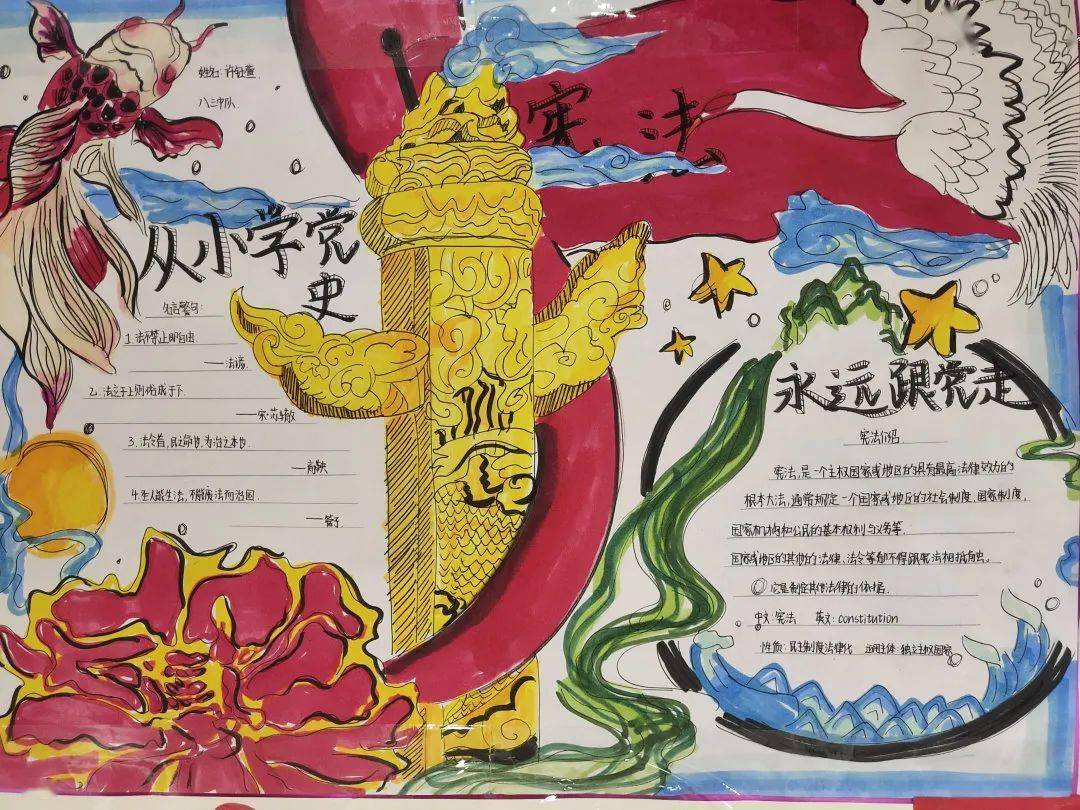 姓名:许
八三中队
宪法
从小学党
史
名言警句:
1.法不禁止即自由.
——法谚.
2.法立于上则俗成于下.
——宋·苏辙
3.法令者,民之命也,为治之本也.
——商鞅
4.圣人能生法,不能废法而治国.
——管子
永远跟党走
宪法介绍
宪法,是一个主权国家或地区的具有最高法律效力的
根本大法,通常规定一个国家或地区的社会制度、国家制度,
国家机构和公民的基本权利与义务等.
国家或地区的其他的法律、法令等都不得跟宪法相抵触。
它是制定其他法律的依据.
中文:宪法 英文:constitution
性质:民主制度法律化 适用主体:独立主权国家